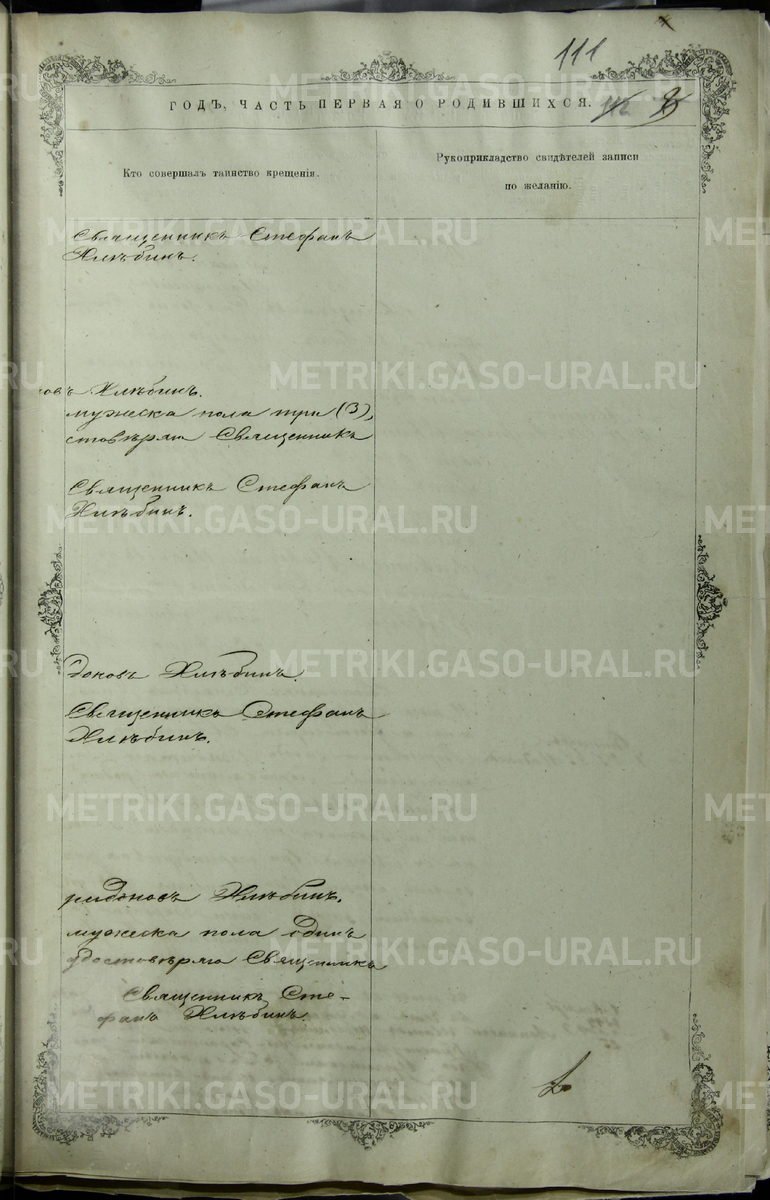 111
ГОДЪ, ЧАСТЬ ПЕРВАЯ О РОДИВШИХСЯ.
Кто совершалъ таинство крещенія.
Рукоприкладство свидѣтелей записи
по желанію.
Священникъ Стефанъ
Хлѣбинъ.
овъ Хлѣбинъ.
мужеска пола три (3),
стовѣряю Священникъ
Священникъ Стефанъ
Хлѣбинъ.
доновъ Хлѣбинъ.
Священникъ Стефанъ
Хлѣбинъ.
ридоновъ Хлѣбинъ.
мужеска пола одинъ
удостовѣряю Священникъ
Священникъ Сте-
фанъ Хлѣбинъ.
METRIKI.GASO-URAL.RU